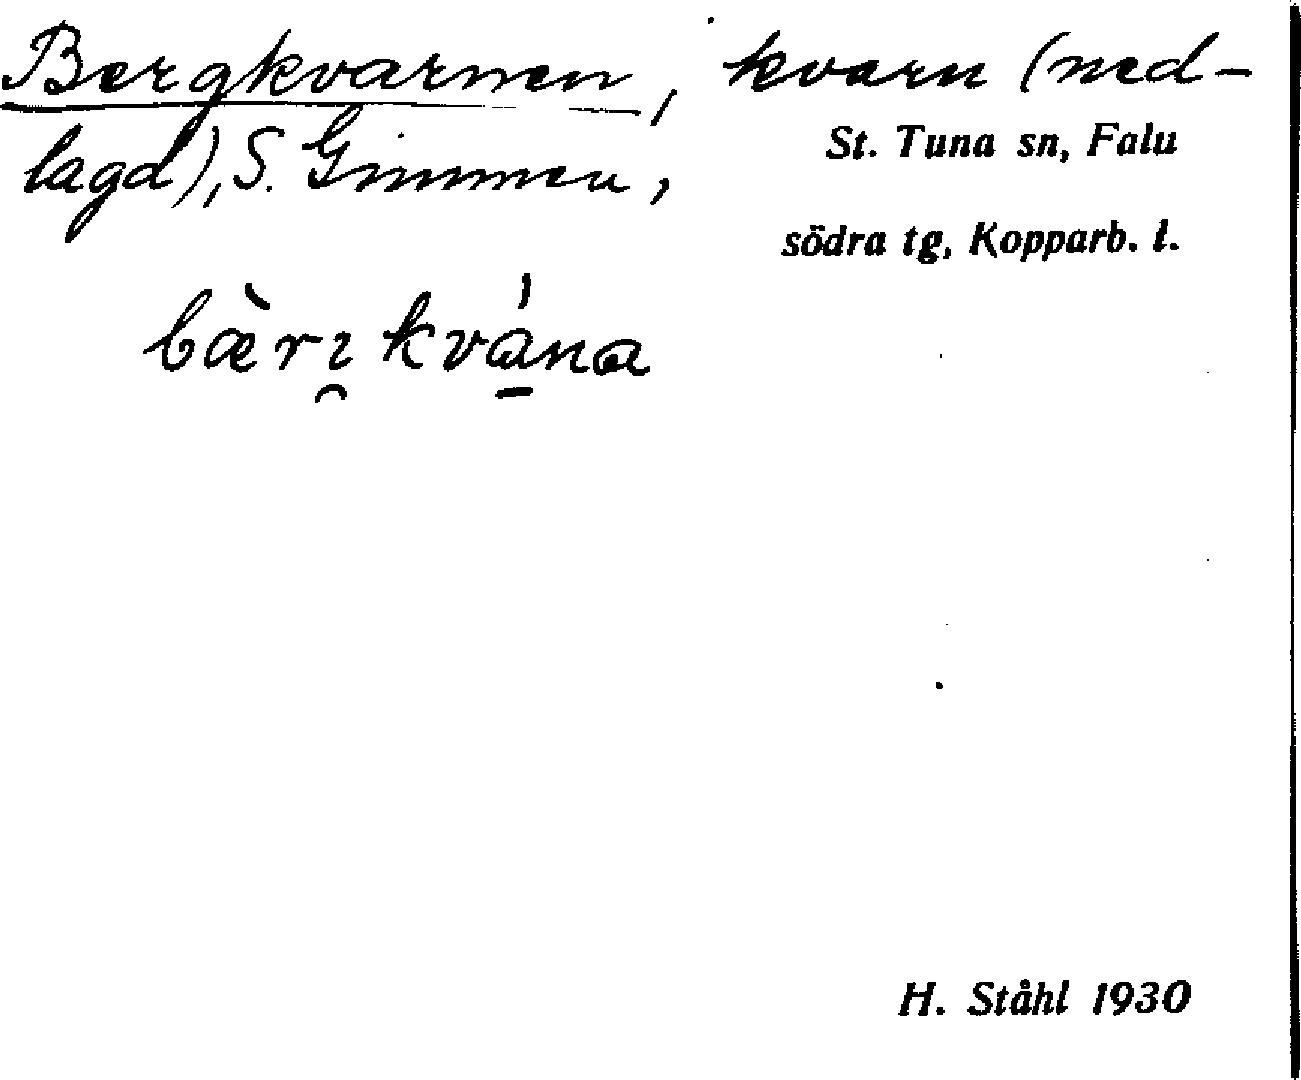 Bergkvarnen, kvarn (ned-
lagd), S. Gimmen,
St. Tuna sn, Falu
södra tg, Kopparb. l.
bæ̀rı̯kvá̱na
H. Ståhl 1930